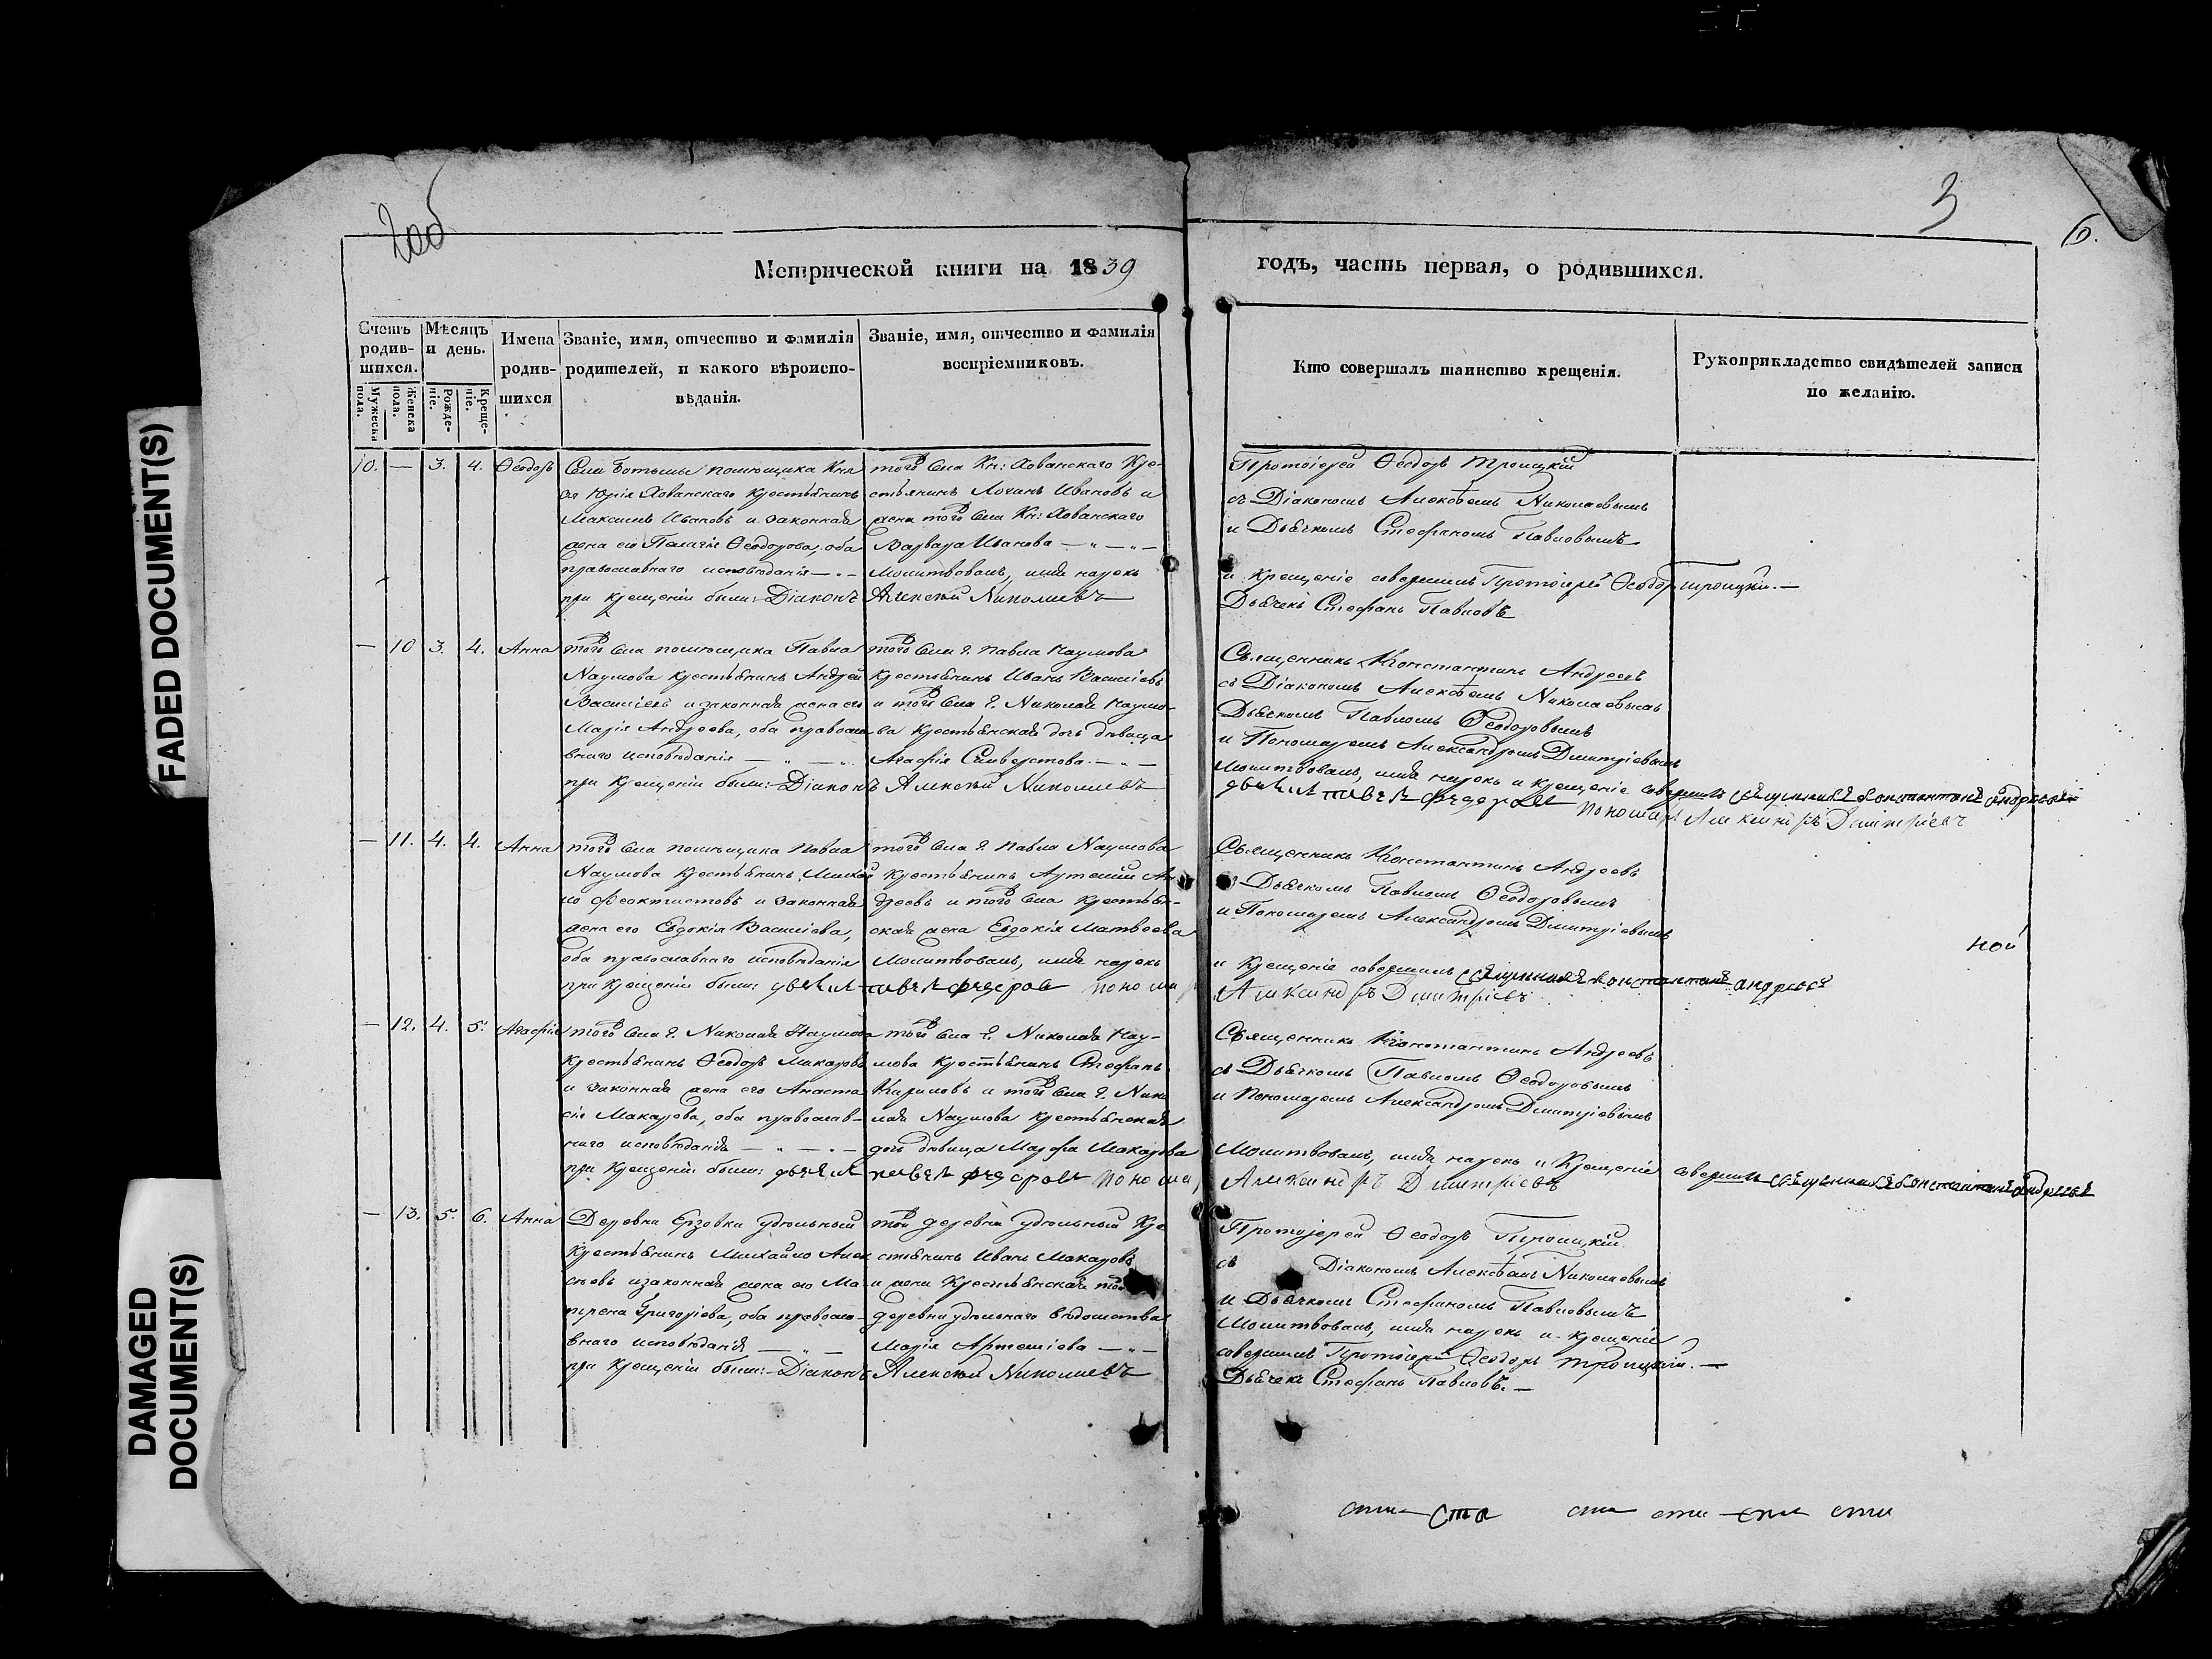 FADED DOCUMENT(S)
DAMAGED
DOCUMENT(S)
2об
3
6.
Метрической книги на 1839
годъ, часть первая, о родившихся.
Счетъ родив-шихся.
Мужеска пола.
Женска пола.
Мѣсяцъ и день.
Рожде-ніе.
Креще-ніе.
Имена родив-шихся
Званіе, имя, отчество и фамилія
родителей, и какого вѣроиспо-
вѣданія.
Званіе, имя, отчество и фамилія
воспріемниковъ.
Кто совершалъ таинство крещенія.
Рукоприкладство свидѣтелей записи
по желанію.
10. — 3. 4. Ѳеодоръ
Села Ботьмы помѣщика Кня
зя Юрія Хованскаго крестьянинъ
Максимъ Ивановъ и законная
жена его Пелагія Ѳеодорова, оба
православнаго исповѣданія —
при крещеніи были: Діаконъ
того села Кн: Хованскаго кре-
стьянинъ Логинъ Ивановъ и
жена того села Кн: Хованскаго
Варвара Иванова —
Молитвовалъ, имя нарекъ
Алексѣй Николаевъ
Протоіерей Ѳеодоръ Троицкій
съ Діакономъ Алексѣемъ Николаевымъ
и Дьячкомъ Стефаномъ Павловымъ
и крещеніе совершилъ Протоіерей Ѳеодоръ Троицкій. —
Дьячекъ Стефанъ Павловъ
— 10 3. 4. Анна
того села помѣщика Павла
Наумова крестьянинъ Андрей
Василіевъ и законная жена его
Марія Андреева, оба правосла
внаго исповѣданія —
при крещеніи были: Діаконъ
того села г. Павла Наумова
крестьянинъ Иванъ Василіевъ
и того села г. Николая Наумо-
ва крестьянская дочь дѣвица
Агафія Сильверстова. —
Алексѣй Николаевъ
Священникъ Константинъ Андреевъ
съ Діакономъ Алексѣемъ Николаевымъ
Дьячкомъ Павломъ Ѳеодоровымъ
и Пономаремъ Александромъ Димитріевымъ
Молитвовалъ, имя нарекъ и крещеніе совершилъ священникъ Константинъ Андреевъ
дьячекъ павелъ федоровъ Пономарь Александръ Димитріевъ
— 11. 4. 4. Анна
того села помѣщика Павла
Наумова крестьянинъ Михаи
ло Феоктистовъ и законная
жена его Евдокія Василіева,
оба православнаго исповѣданія
при крещеніи были: дьячекъ
того села г. Павла Наумова
крестьянинъ Артемій Ан
дреевъ и того села крестьян-
ская жена Евдокія Матвеева
Молитвовалъ, имя нарекъ
павелъ федоровъ Пономарь
Священникъ Константинъ Андреевъ
съ Дьячкомъ Павломъ Ѳеодоровымъ
и Пономаремъ Александромъ Димитріевымъ
ной
и крещеніе совершилъ священникъ константинъ андреевъ
Александръ Димитріевъ
— 12. 4. 5. Агафія
того села г. Николая Наумова
крестьянинъ Ѳеодоръ Макаровъ
и законная жена его Анаста
сія Макарова, оба православ-
наго исповѣданія —
при крещеніи были: дьячекъ
того села г. Николая Нау-
мова крестьянинъ Стефанъ
Кириловъ и того села г. Нико
лая Наумова крестьянская
дочь дѣвица Марфа Макарова
павелъ федоровъ Пономарь
Священникъ Константинъ Андреевъ
съ Дьячкомъ Павломъ Ѳеодоровымъ
и Пономаремъ Александромъ Димитріевымъ
Молитвовалъ, имя нарекъ и крещеніе совершилъ священникъ константинъ андреевъ
Александръ Димитріевъ
— 13. 5. 6. Анна
Деревни Ерзовки удѣльный
крестьянинъ Михайло Алек
сѣевъ и законная жена его Ма
трена Григоріева, оба правосла-
внаго исповѣданія —
при крещеніи были: Діаконъ
той деревни удѣльный кре
стьянинъ Иванъ Макаровъ
и жена крестьянская той
деревни удѣльнаго вѣдомства
Марія Артеміева —
Алексѣй Николаевъ
Протоіерей Ѳеодоръ Троицкій
съ Діакономъ Алексѣемъ Николаевымъ
и Дьячкомъ Стефаномъ Павловымъ
Молитвовалъ, имя нарекъ и крещеніе
совершилъ Протоіерей Ѳеодоръ Троицкій. —
Дьячекъ Стефанъ Павловъ. —